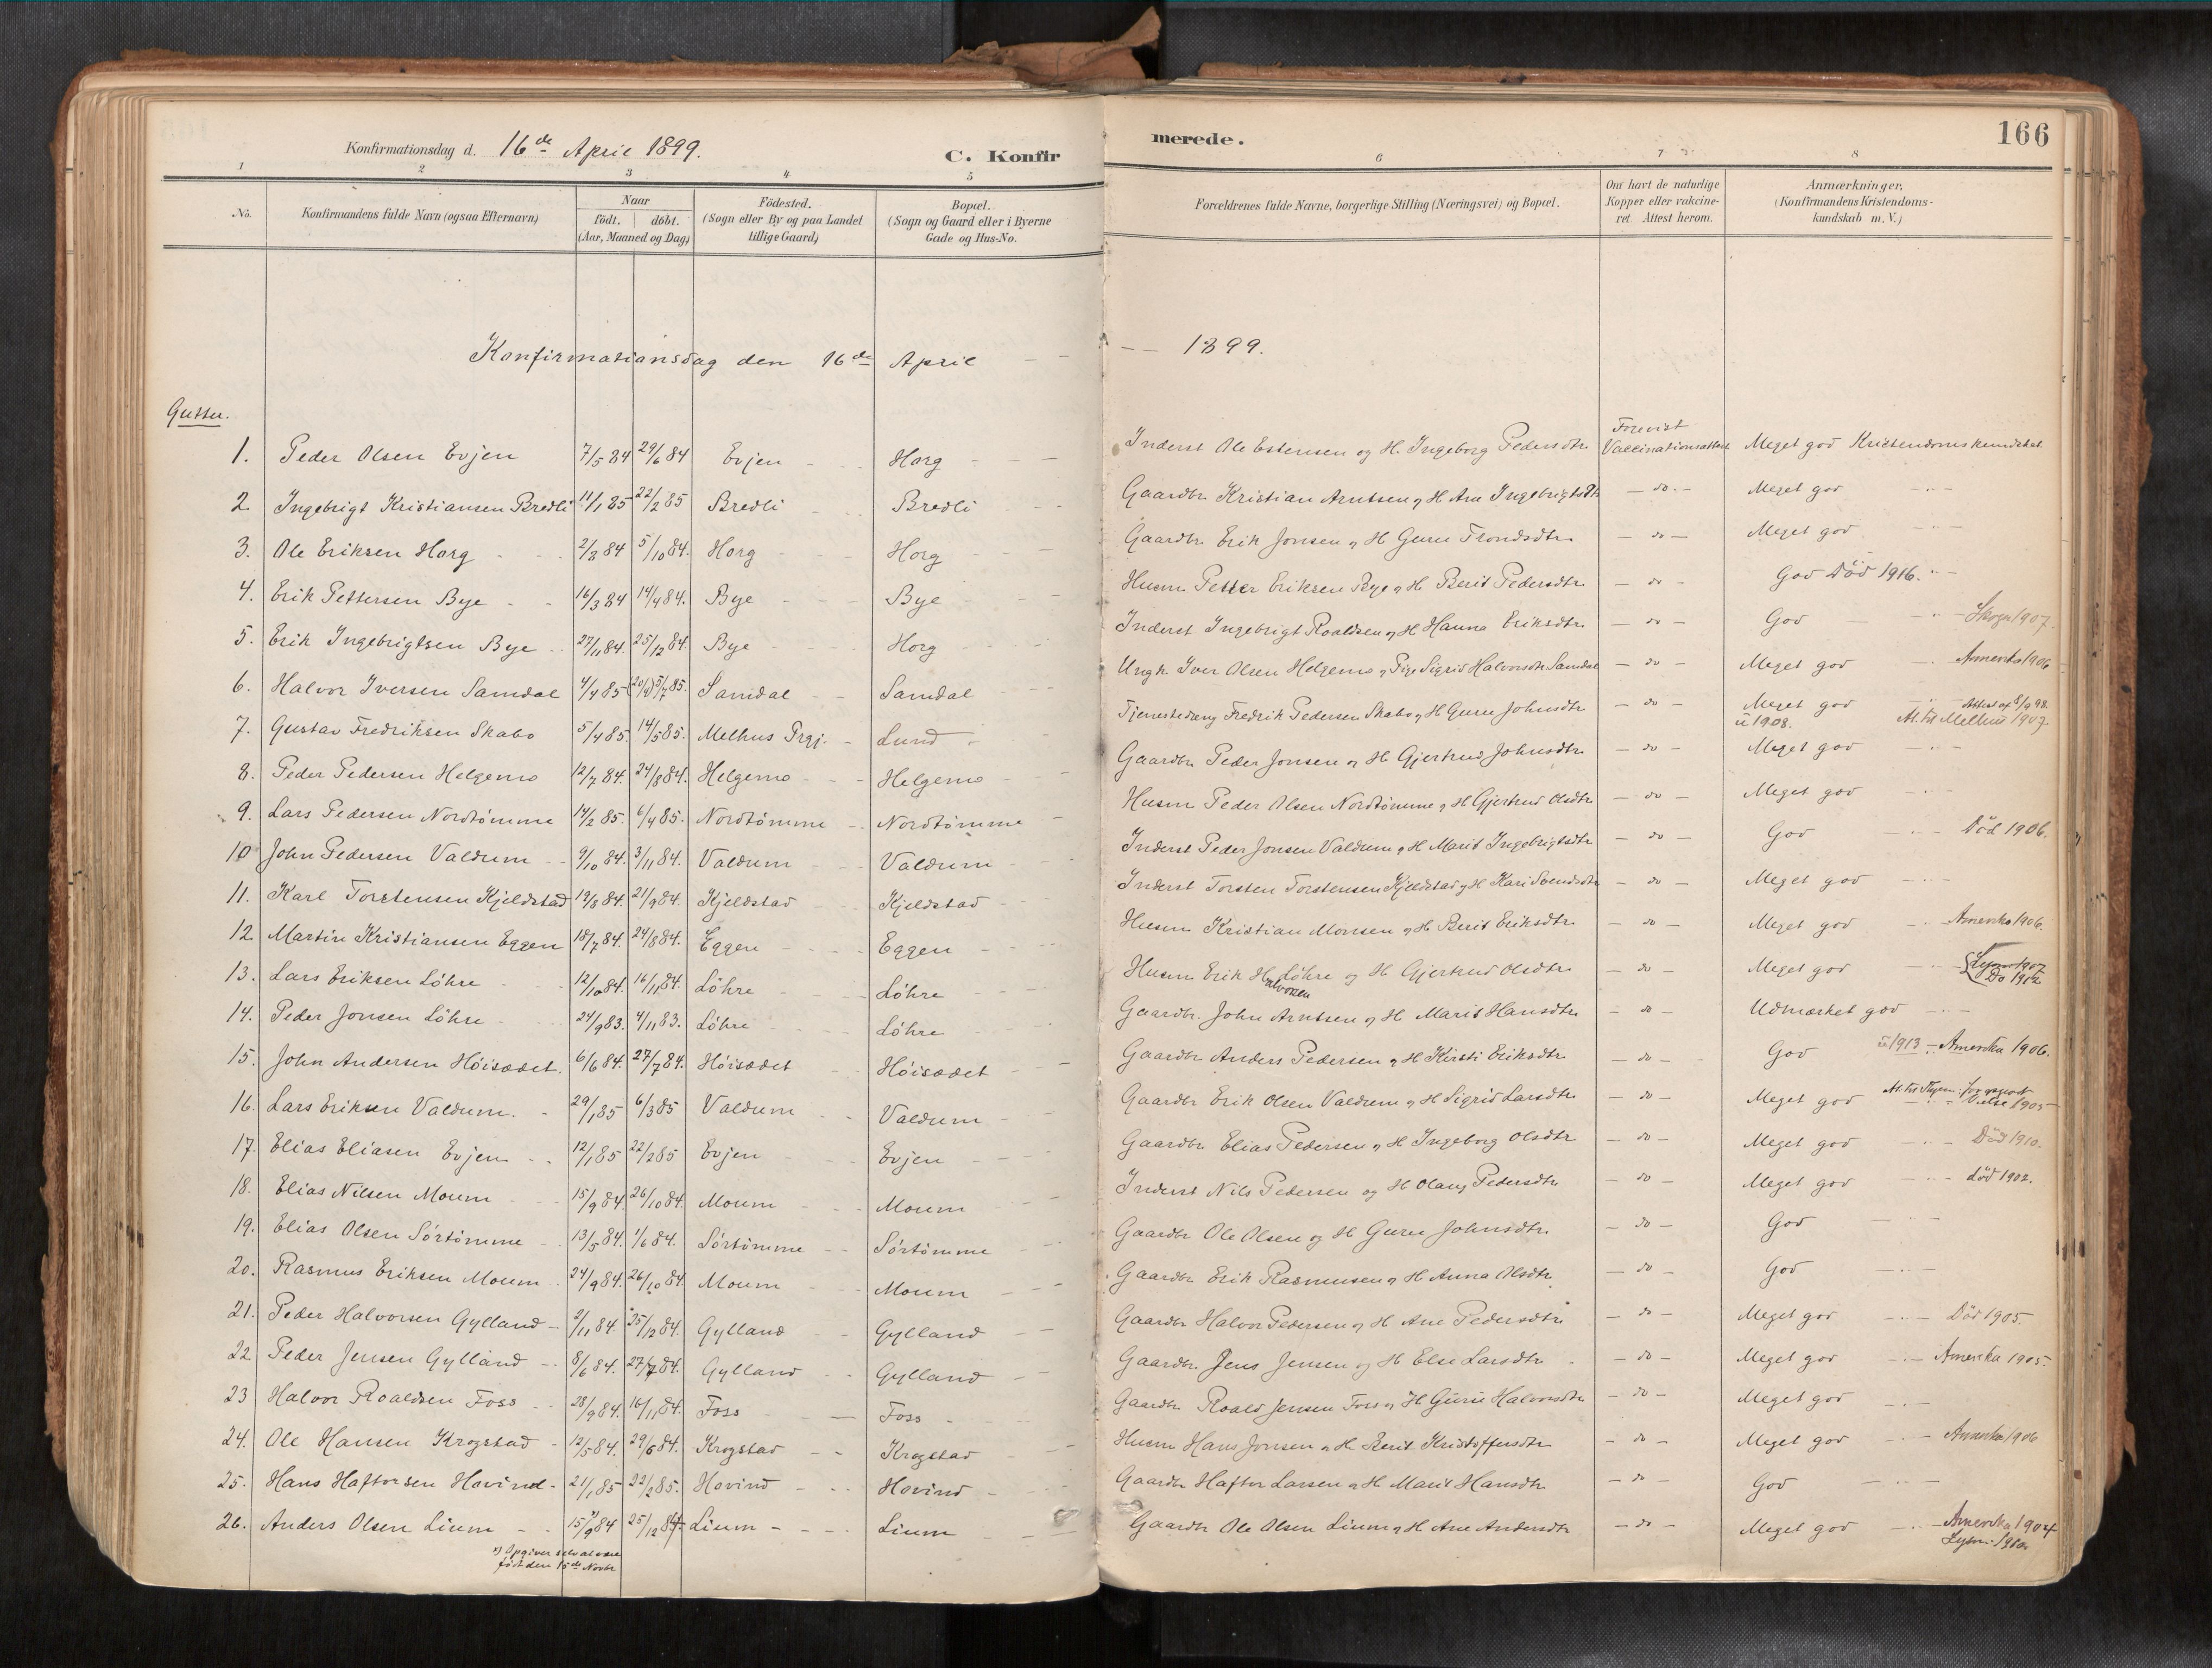 Konfirmationsdag d. 16de April 1899. C. Konfir
merede. 166
1 2 3 4 5 6 7 8
No. Konfirmandens fulde Navn (ogsaa Efternavn) Naar födt. döbt. (Aar, Maaned og Dag) Födested. (Sogn eller By og paa Landet tillige Gaard) Bopæl. (Sogn og Gaard eller i Byerne Gade og Hus-No. Forældrenes fulde Navne, borgerlige Stilling (Næringsvei) og Bopæl. Om havt de naturlige Kopper eller vakcineret. Attest herom. Anmærkninger. (Konfirmandens Kristendomskundskab m. V.)
Konfirmationsdag den 16de April – – 1899.
Gutter.
1. Peder Olsen Evjen 7/5 84 29/6 84 Evjen Horg Inderst Ole Estensen og H. Ingeborg Pedersdtr Forevist Vaccinationsattest Meget god Kristendomskundskab
2 Ingebrigt Kristiansen Bredli 11/1 85 22/2 85 Bredli Bredli Gaardbr Kristian Arntsen og H Ane Ingebrigtsdtr – do – Meget god
3. Ole Eriksen Horg 2/8 84 5/10 84. Horg Horg Gaardbr Erik Jonsen og H Guru Trondsdtr – do – Meget god
4. Erik Pettersen Bye 16/3 84 14/4 84. Bye Bye Husm Petter Eriksen Bye og H Berit Pedersdtr – do – God Död 1916.
5. Erik Ingebrigtsen Bye 27/11 84. 25/12 84 Bye Horg Inderst Ingebrigt Roaldsen og H Hanna Eriksdtr – do – God Skogn 1907.
6. Halvor Iversen Samdal 4/4 85 (20/4) 5/7 85. Samdal Samdal Ungk. Iver Olsen Helgemo og Pige Sigrid Halvorsdtr Samdal – do – Meget god Amerika 1906
7. Gustav Fredriksen Skabo 5/4 85. 14/5 85. Melhus Prgj. Lund Tjenestedreng Fredrik Pedersen Skabo og H Guru Johnsdtr – do – Meget god Attest af 8/9 98. u 1908. At. til Melhus 1907.
8. Peder Pedersen Helgemo 12/7 84. 24/8 84. Helgemo Helgemo Gaardbr Peder Jonsen og H Gjertrud Johnsdtr – do – Meget god
9. Lars Pedersen Nordtömme 14/2 85. 6/4 85. Nordtömme Nordtömme Husm Peder Olsen Nordtömme og H Gjertrud Olsdtr – do – Meget god
10 John Pedersen Valdum 9/10 84. 3/11 84. Valdum Valdum Inderst Peder Jonsen Valdum og H Marit Ingebrigtsdtr – do – God Död 1906.
11. Karl Torstensen Kjeldstad 19/8 84. 21/9 84. Kjeldstad Kjeldstad Inderst Torsten Torstensen Kjeldstad og H Kari Svendsdtr – do – Meget god
12 Martin Kristiansen Eggen 18/7 84. 24/8 84. Eggen Eggen Husm Kristian Monsen og H Berit Eriksdtr – do – Meget god Amerika 1906.
13. Lars Eriksen Löhre 12/10 84. 16/11 84. Löhre Löhre Husm Erik Halvorsen Löhre og H Gjertrud Olsdtr – do – Meget god Lysn 1907 Do 1912
14. Peder Jonsen Löhre 24/9 83. 4/11 83. Löhre Löhre Gaardbr. John Arntsen og H Marit Hansdtr – do – Udmærket god
15. John Andersen Höisædet. 6/6 84. 27/7 84. Höisædet Höisædet Gaardbr Anders Pedersen og H Kirsti Eriksdtr – do – God u 1913 – Amerika 1906.
16. Lars Eriksen Valdum. 29/1 85 6/3 85 Valdum Valdum Gaardbr Erik Olsen Valdum og H Sigrid Larsdtr – do – Meget god Vielse 1905
17. Elias Eliasen Evjen 12/1 85 22/2 85 Evjen Evjen Gaardbr Elias Pedersen og H Ingeborg Olsdtr – do – Meget god Död 1910.
18. Elias Nilsen Moum 15/9 84. 26/10 84. Moum Moum Inderst Nils Pedersen og H Olaug Pedersdtr – do – Meget god död 1902.
19. Elias Olsen Sörtömme 13/5 84. 1/6 84. Sörtömme Sörtömme Gaardbr Ole Olsen og H Guru Johnsdtr. – do – God
20. Rasmus Eriksen Moum 24/9 84. 26/10 84 Moum Moum Gaardbr Erik Rasmussen og H Anna Olsdtr. – do – God
21. Peder Halvorsen Gylland 2/11 84 25/12 84. Gylland Gylland Gaardbr Halvor Pedersen og H Ane Pedersdtr – do – Meget god Död 1905.
22 Peder Jensen Gylland 8/6 84. 27/7 84. Gylland Gylland Gaardbr. Jens Jensen og H Else Larsdtr – do – Meget god Amerika 1905.
23 Halvor Roaldsen Foss 28/9 84. 16/11 84. Foss Foss Gaardbr Roald Jensen Foss og H Guru Halvorsdtr – do – Meget god
24. Ole Hansen Krogstad 12/5 84. 29/6 84. Krogstad Krogstad Husm Hans Jonsen og H Berit Kristoffersdtr – do – Meget god Amerika 1906
25. Hans Haftorsen Hovind 21/1 85 22/2 85. Hovind Hovind Gaardbr Haftor Larsen og H Marit Hansdtr – do – God
26. Anders Olsen Lium 15/9 84 25/12 84. Lium Lium Gaardbr Ole Olsen Lium og H Ane Andersdtr – do – Meget god Amerika 1904 Lysn. 1910
x) Opgiver selv at være
födt den 15de Novbr